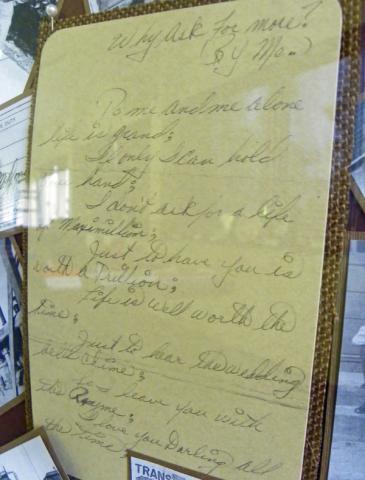 Why ask for more?
(By Me.)
To me and me alone
life is grand;
If only I can hold
your hand;
I don't ask for a life
of Maximillion;
Just to have you is
worth a Trillion;
Life is well worth the
time;
Just to hear the wedding
bells Chime;
to leave you with
this Rhyme;
I love you Darling all
the time
TRANS